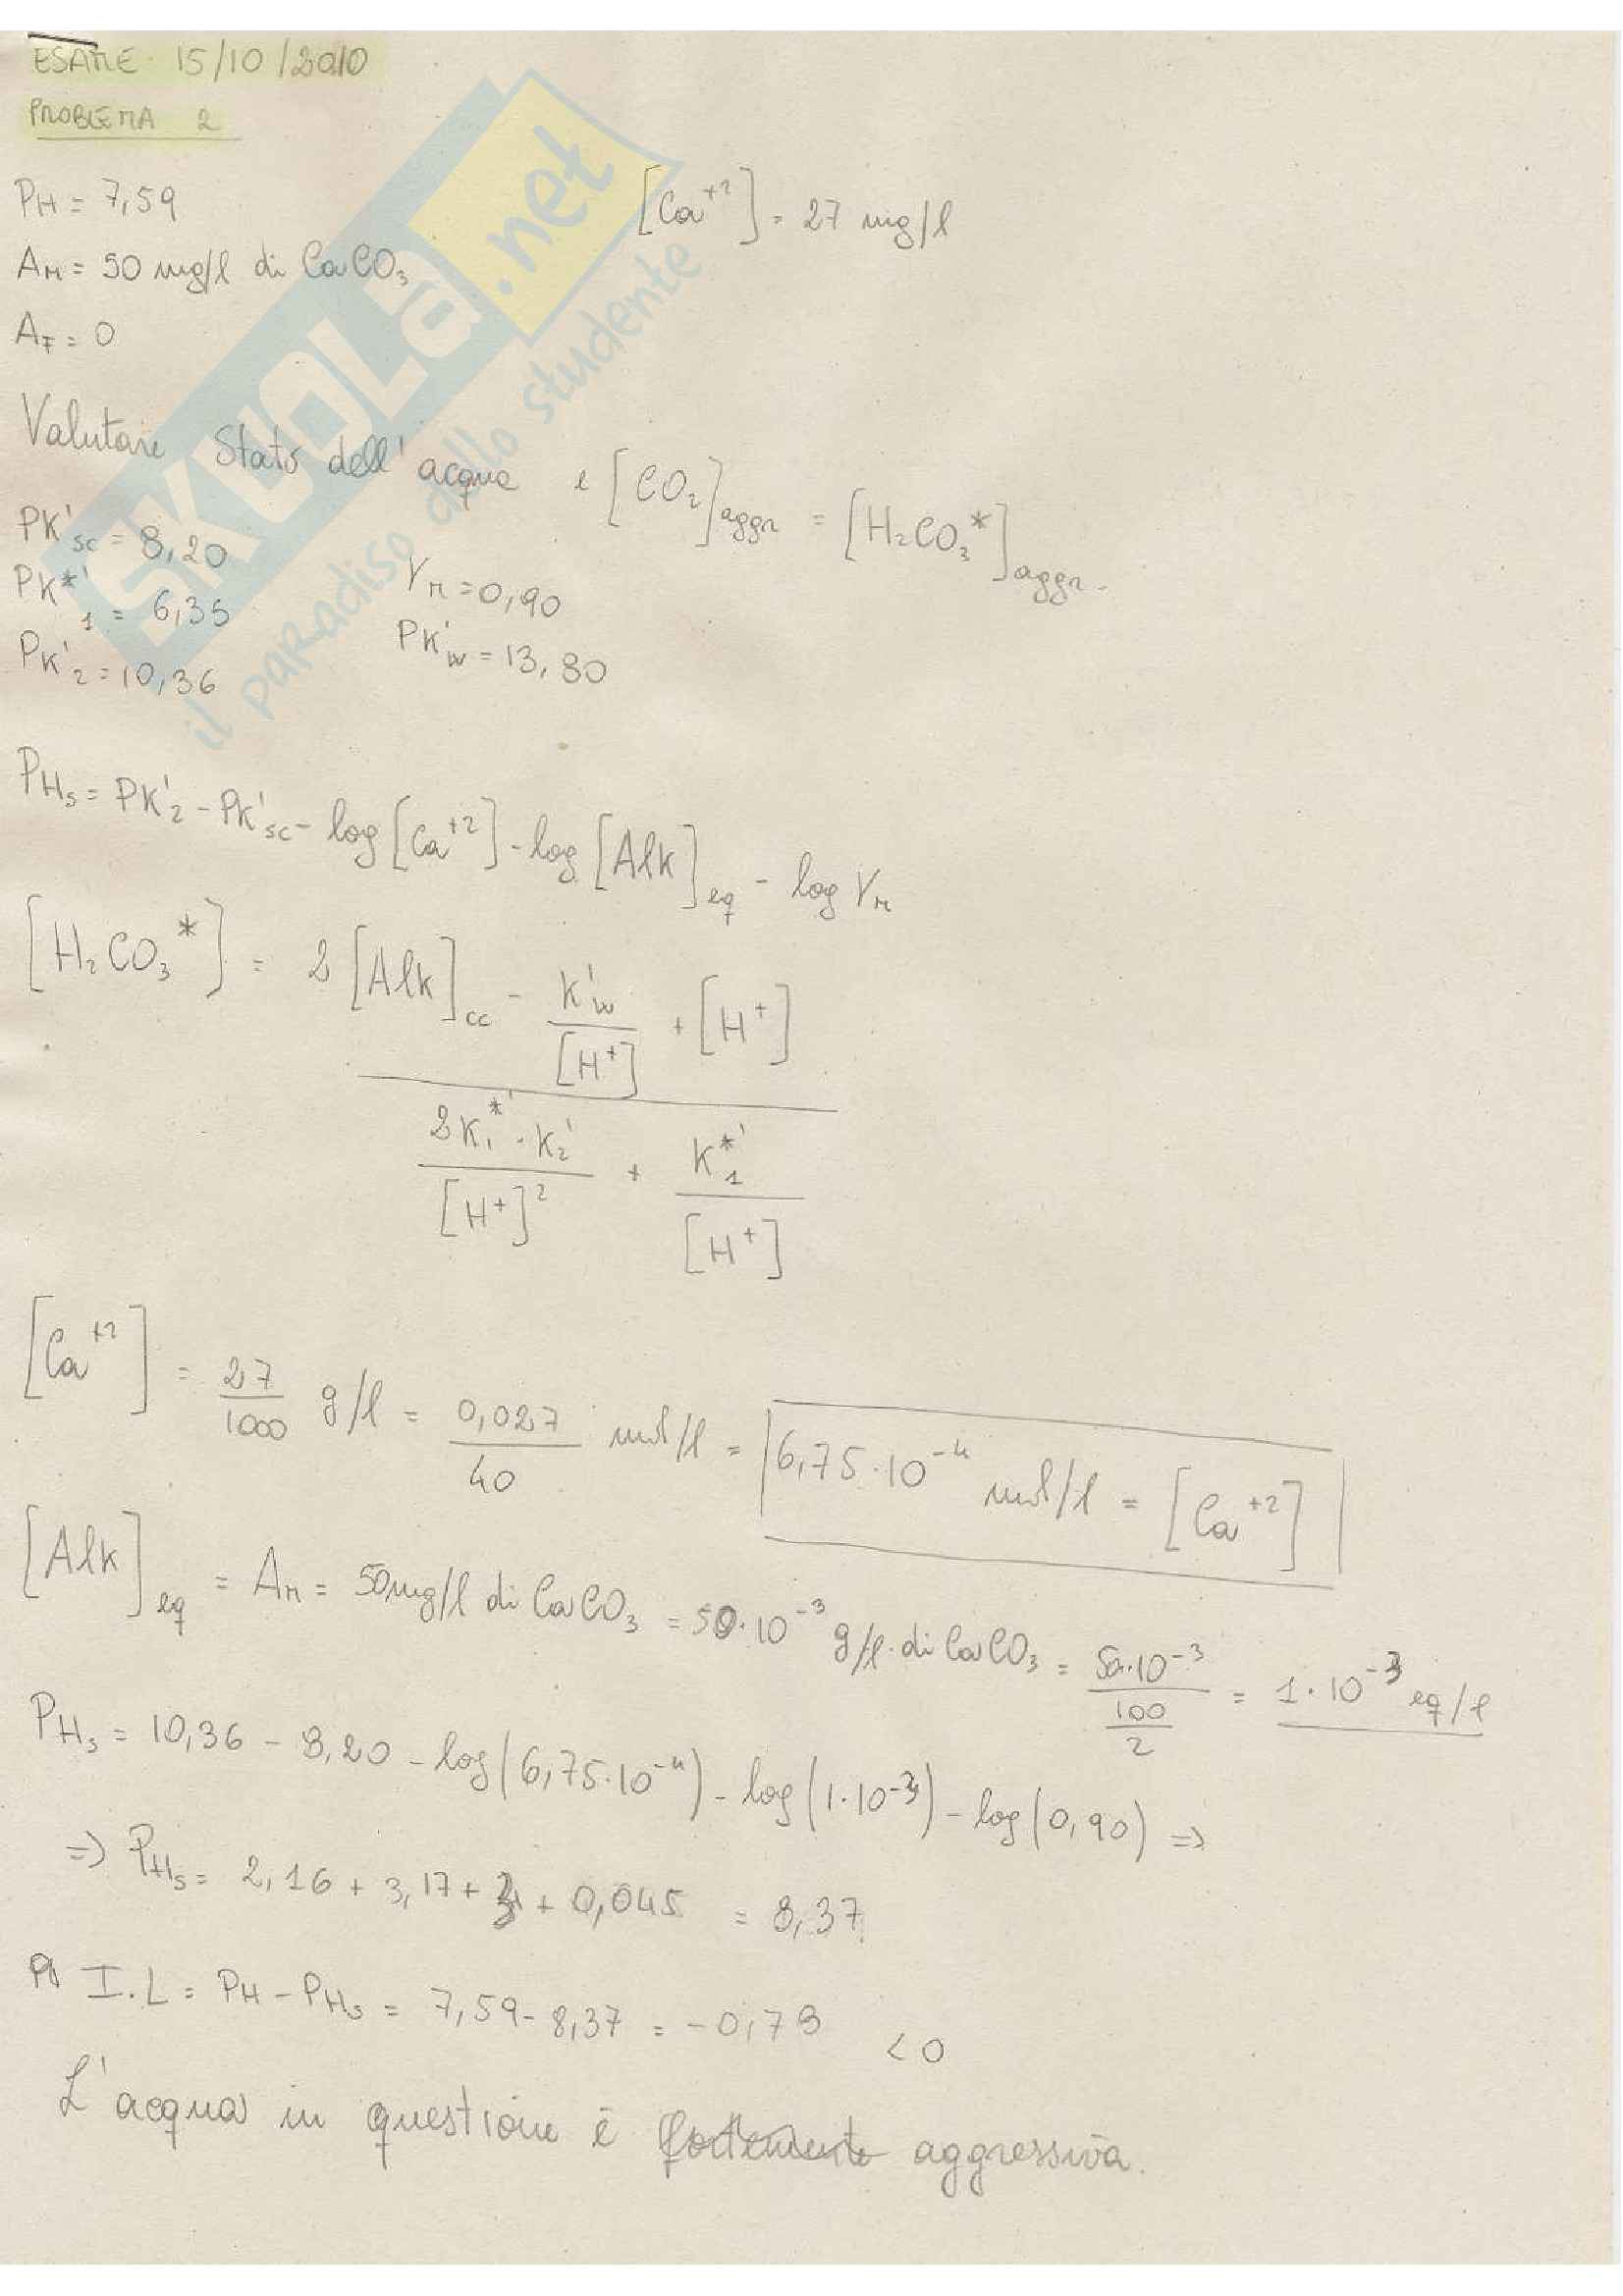 ESAME 15/10/2010
PROBLEMA 2
PH = 7,59
[Ca⁺²] = 27 mg/l
AM = 50 mg/l di CaCO₃
AF = 0
Valutare Stato dell'acqua e [CO₂]aggr = [H₂CO₃*]aggr.
PK'sc = 8,20
PK*'₁ = 6,35
γM = 0,90
PK'₂ = 10,36
PK'w = 13,80
PHs = PK'₂ - PK'sc - log [Ca⁺²] - log [Alk]eq - log γM
[H₂CO₃*] = 2 [Alk]cc - K'w / [H⁺] + [H⁺]
2K₁*' · K₂' / [H⁺]² + K*'₁ / [H⁺]
[Ca⁺²] = 27/1000 g/l = 0,027/40 mol/l = 6,75·10⁻⁴ mol/l = [Ca⁺²]
[Alk]eq = AM = 50mg/l di CaCO₃ = 50·10⁻³ g/l di CaCO₃ = 50·10⁻³ / (100/2) = 1·10⁻³ eq/l
PHs = 10,36 - 8,20 - log(6,75·10⁻⁴) - log(1·10⁻³) - log(0,90) =>
=> PHs = 2,16 + 3,17 + 3 + 0,045 = 8,37
I.L = PH - PHs = 7,59 - 8,37 = -0,78 < 0
L'acqua in questione è fortemente aggressiva.
SKUOLA.net
il paradiso dello studente